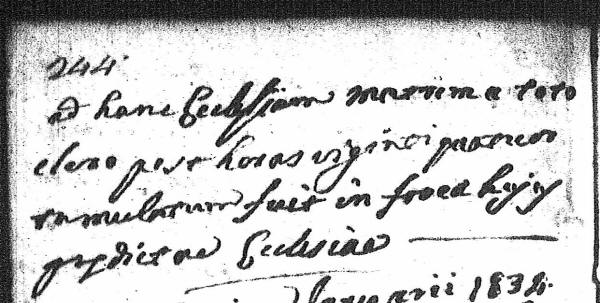 244.
ad hanc Ecclesiam matrem a toto
clero post horas viginti quatuor
tumulatum fuit in fovea hujus
predictae Ecclesiae
Januarii 1834.